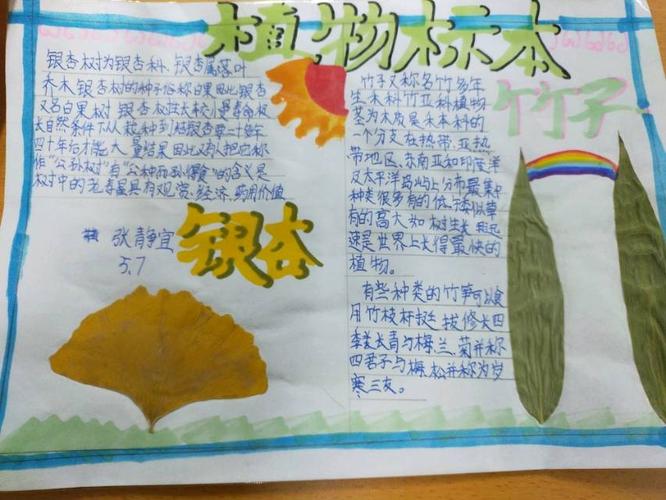 植物标本
银杏树为银杏科、银杏属落叶
乔木银杏树的种子俗称白果因此银杏
又名白果树 银杏树
长自然条件下从栽种到结银杏要二十多年
四十年后才能大量结果因此又有人把它称
作"公孙树"有"公种而孙得食"的含义是
树中的老寿星具有观赏、经济、药用价值
张静宜
5.7
银杏
竹子
竹子又称名竹多年
生禾科竹亚科植物
茎为木质是禾本科的
一个分支在热带、亚热
带地区、东南亚和印度洋
及太平洋岛屿上分布最集中
种类很多有的低矮似草
有的高大如树生长迅
速是世界上长得最快的
植物。
有些种类的竹笋可以食
用竹枝杆挺拔修长四
季美长青与梅、兰、菊并称
四君子与梅、松并称为岁
寒三友。